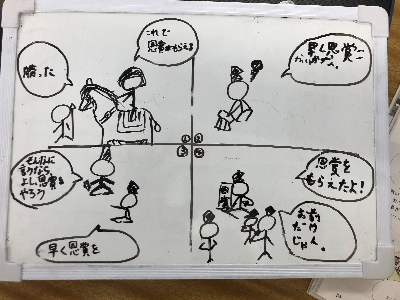 これで
恩賞がもらえる
勝った
①②
③④
早く恩賞
そんなに
言うなら
よし恩賞を
やろう
早く恩賞を
恩賞を
恩賞を
もらえたよ!
お前
だけ
じゃん。